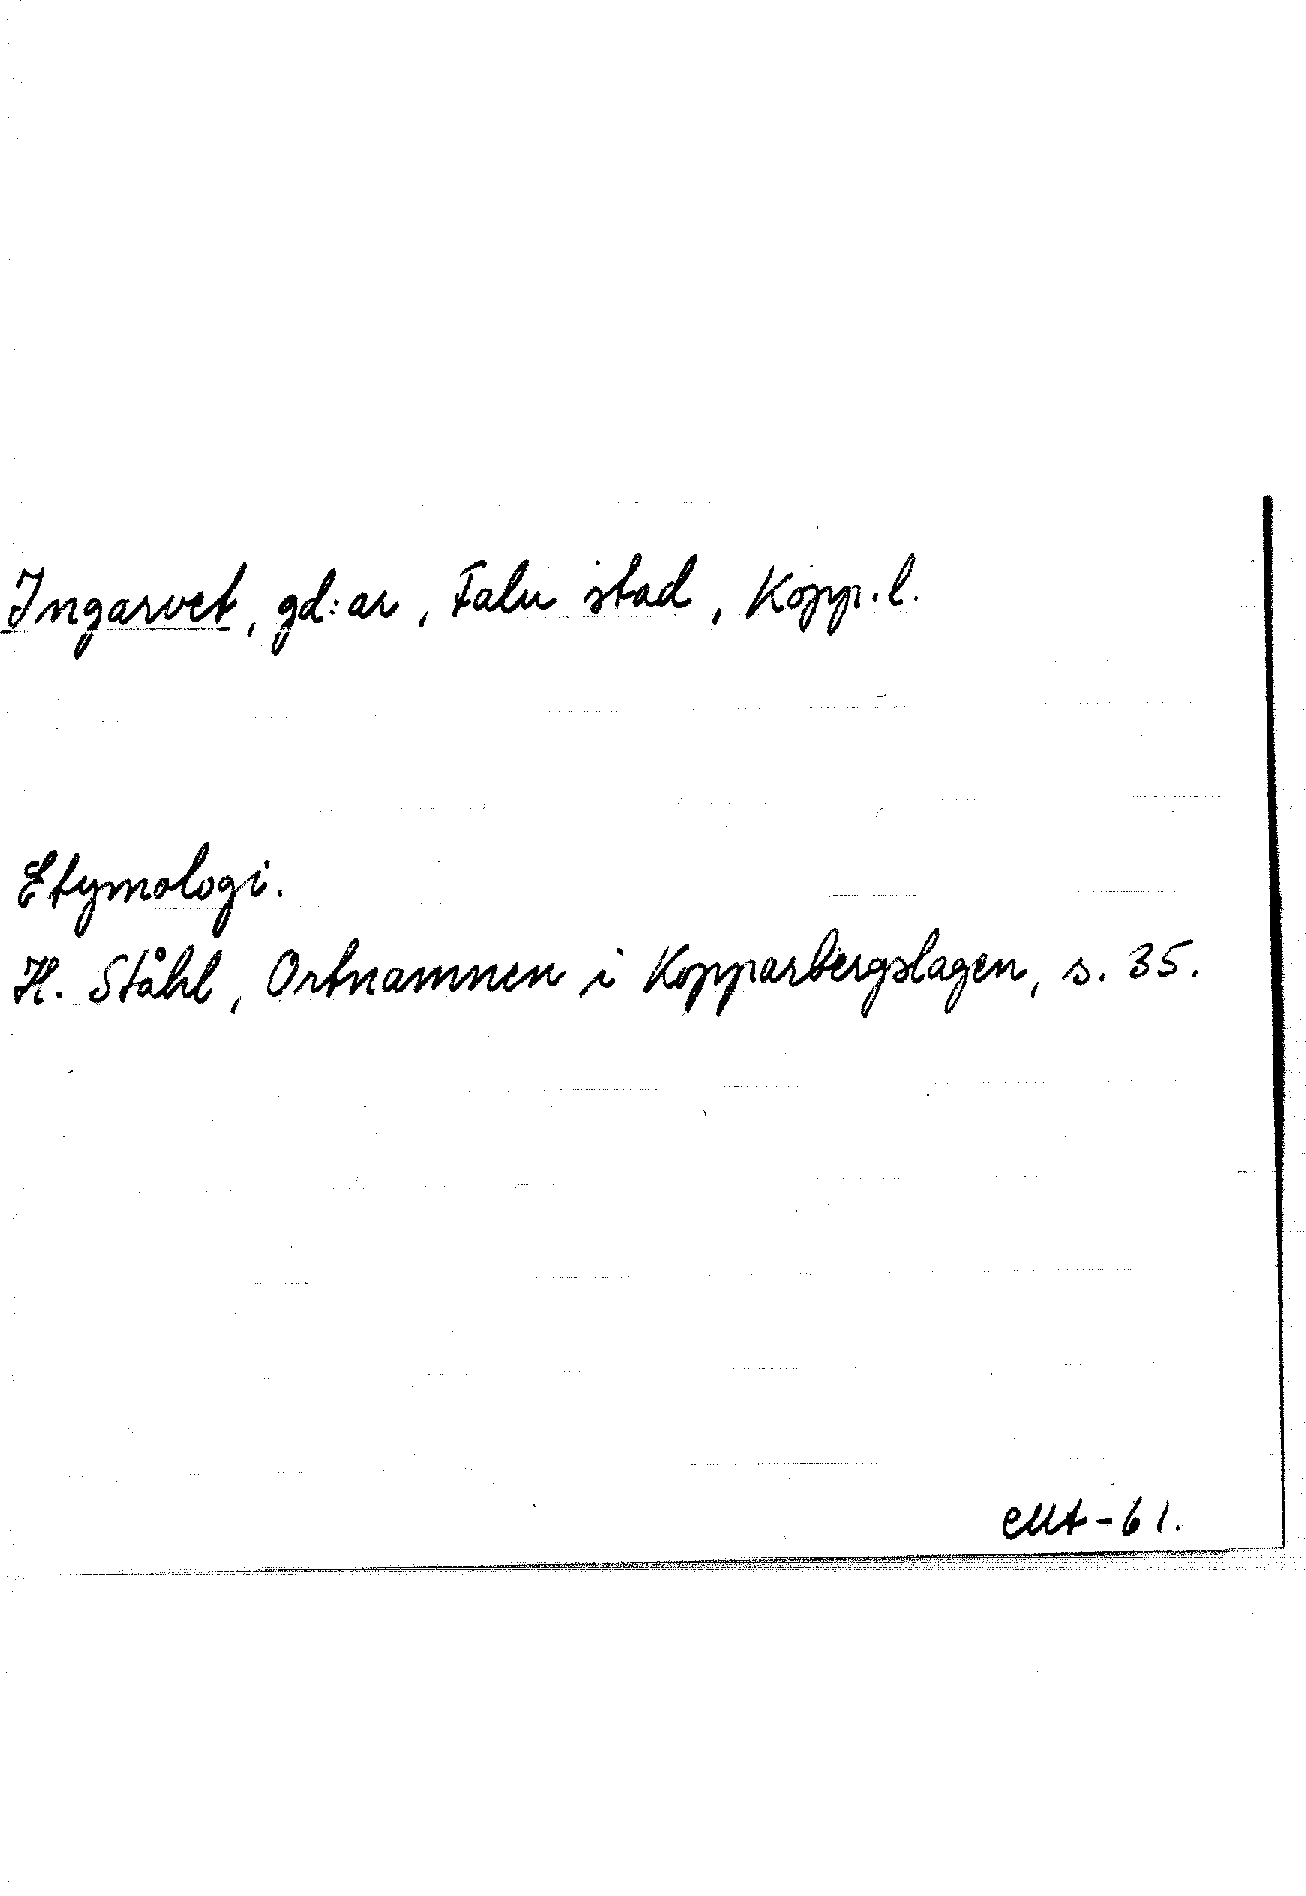 Ingarvet, gd:ar, Falu stad, Kopp.l.
Etymologi.
H. Ståhl, Ortnamnen i Kopparbergslagen, s. 35.
-61.